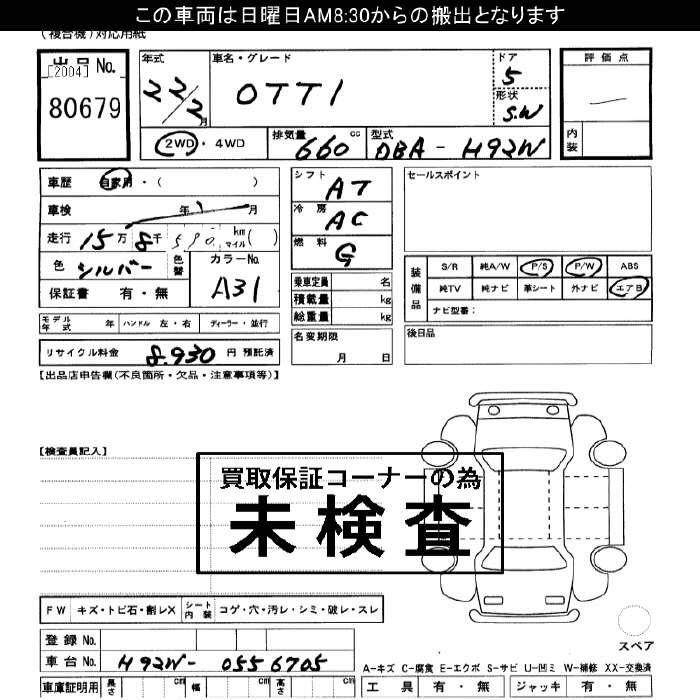 この車両は日曜日AM8:30からの搬出となります
(複合機)対応用紙
出品 No.
[2004]
80679
年式
22/2月
車名・グレード
OTTI
ドア
5
形状
S.W
評価点
内装
2WD・4WD
排気量 660 cc
型式 DBA - H92W
車歴 自家用・( )
車検 年 月
走行 15万 8千 590 km マイル( )
色 シルバー 色替
カラーNo. A31
保証書 有・無
シフト AT
冷房 AC
燃料 G
乗車定員 名
積載量 kg
総重量 kg
セールスポイント
装備品
S/R 純A/W P/S P/W ABS
純TV 純ナビ 革シート 外ナビ エアB
ナビ型番:
モデル年式 年 ハンドル 左・右 ディーラー・並行
名変期限 月 日
後日品
リサイクル料金 8.930 円 預託済
【出品店申告欄(不良箇所・欠品・注意事項等)】
【検査員記入】
買取保証コーナーの為
未検査
FW キズ・トビ石・割レX シート内装 コゲ・穴・汚レ・シミ・破レ・スレ
登録 No.
車台 No. H92W- 0556705
スペア
A-キズ C-腐食 E-エクボ S-サビ U-凹ミ W-補修 XX-交換済
車庫証明用 長さ cm 幅 cm 高さ cm
工具 有・無 ジャッキ 有・無